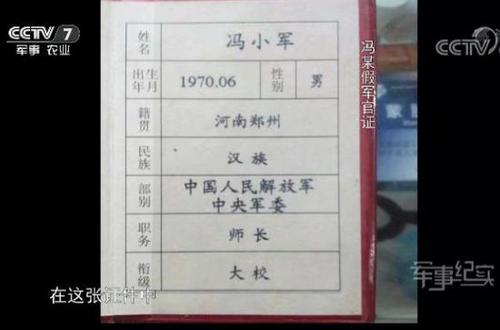 CCTV 7
军事·农业
CCTV
姓名 冯小军
出生年月 1970.06 性别 男
籍贯 河南郑州
民族 汉族
部别 中国人民解放军
中央军委
职务 师长
衔级 大校
冯某假军官证
在这张证件中
军事纪实